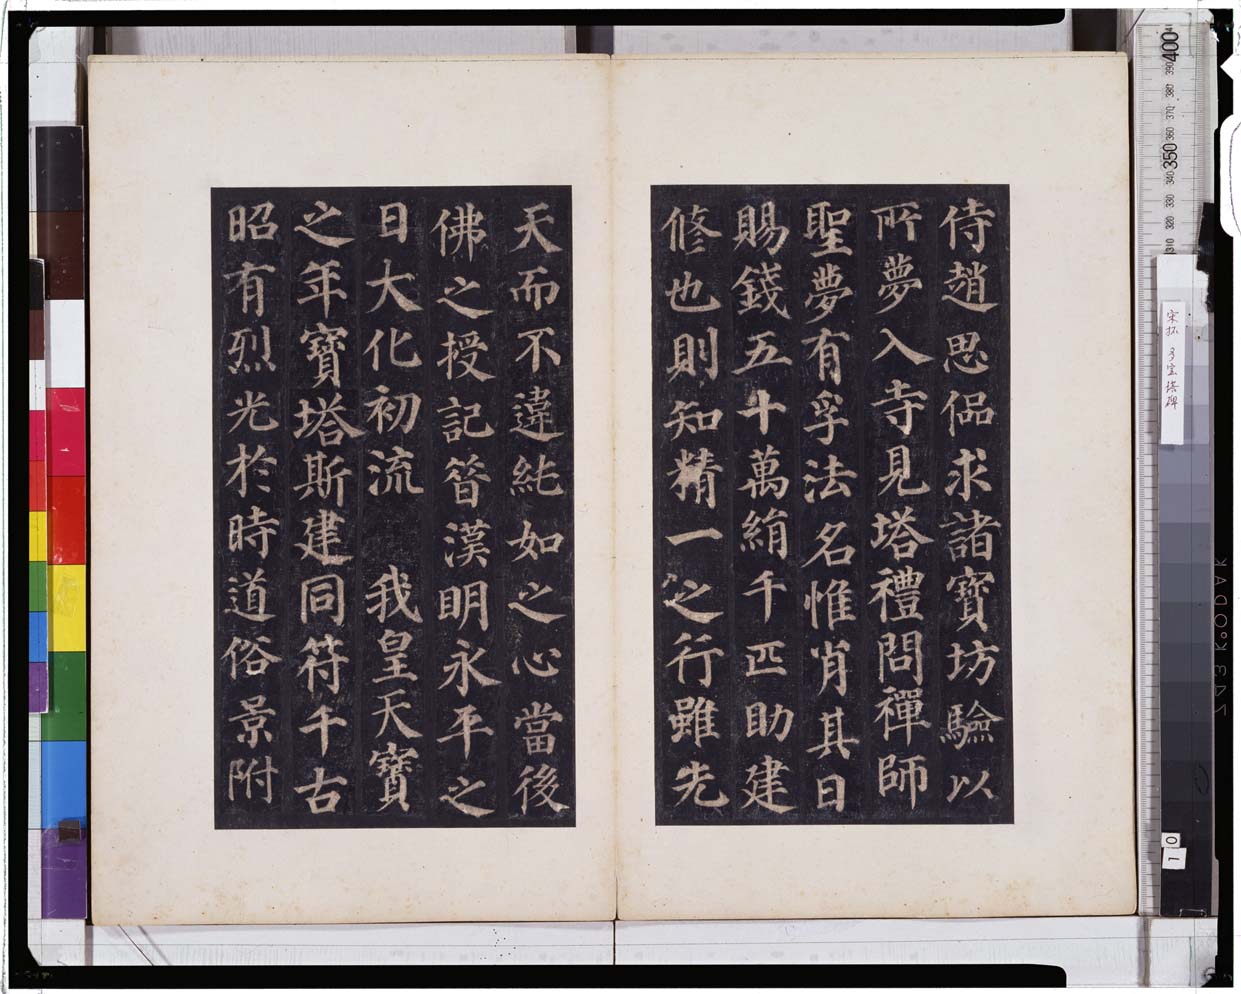 侍趙思偘求諸寶坊驗以
所夢入寺見塔禮問禪師
聖夢有孚法名惟肖其日
賜錢五十萬絹千匹助建
修也則知精一之行雖先
天而不違純如之心當後
佛之授記昝漢明永平之
日大化初流 我皇天寶
之年寶塔斯建同符千古
昭有烈光於時道俗景附
宋拓 多宝塔碑
400
390
380
370
360
350
340
330
320
310
KODAK
1 0